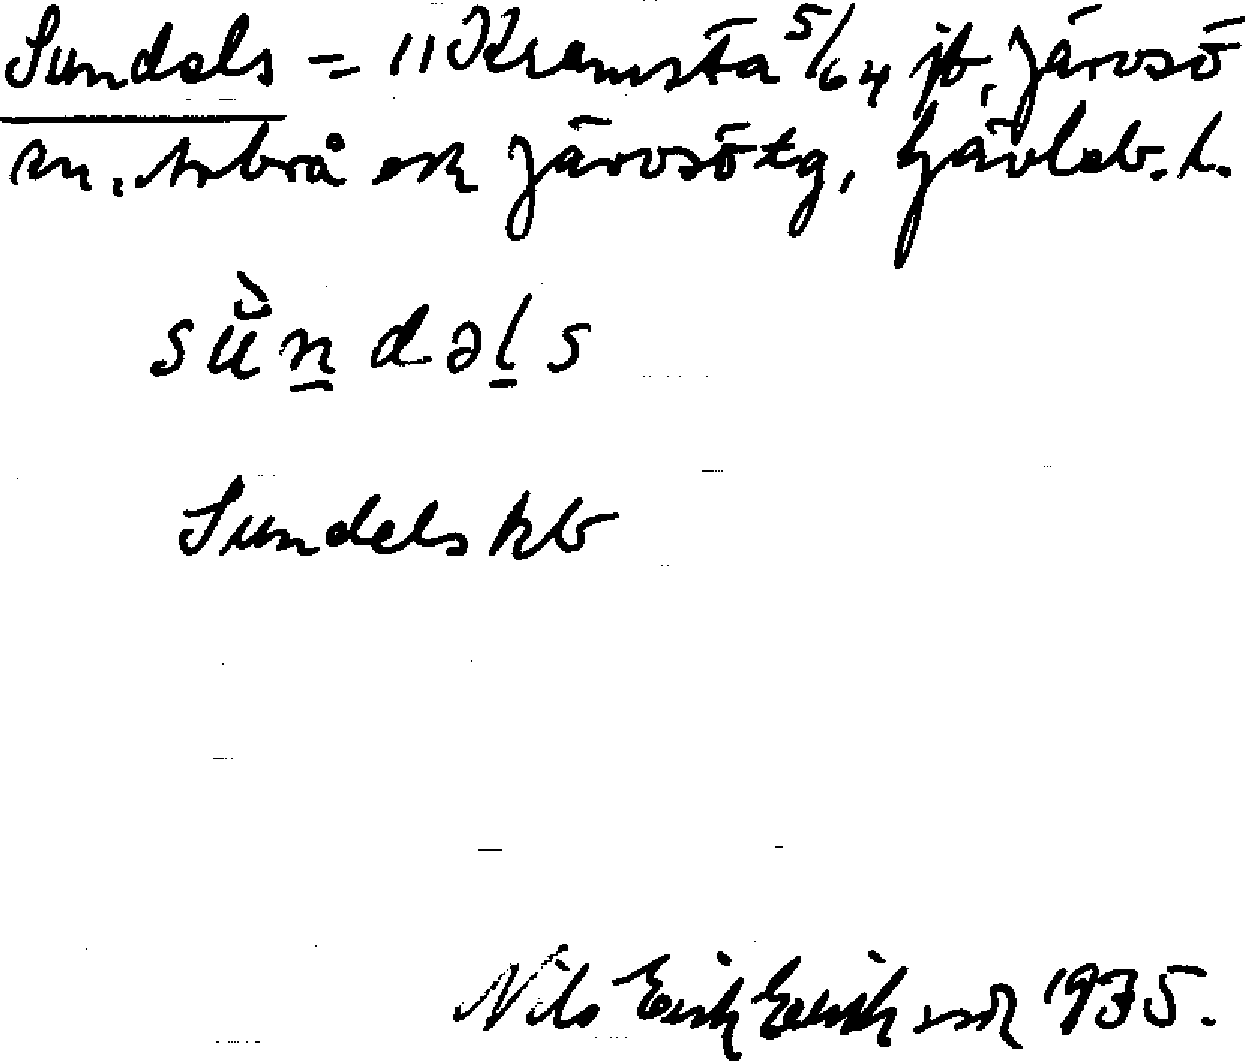 Sundels = 11 Kramsta 5/64 jb, Järvsö
sn, Arbrå och Järvsö tg, Gävleb. l.
sù̈n̲dəl̲s
Sundels kb
Nils Erik Eriksson 1935.